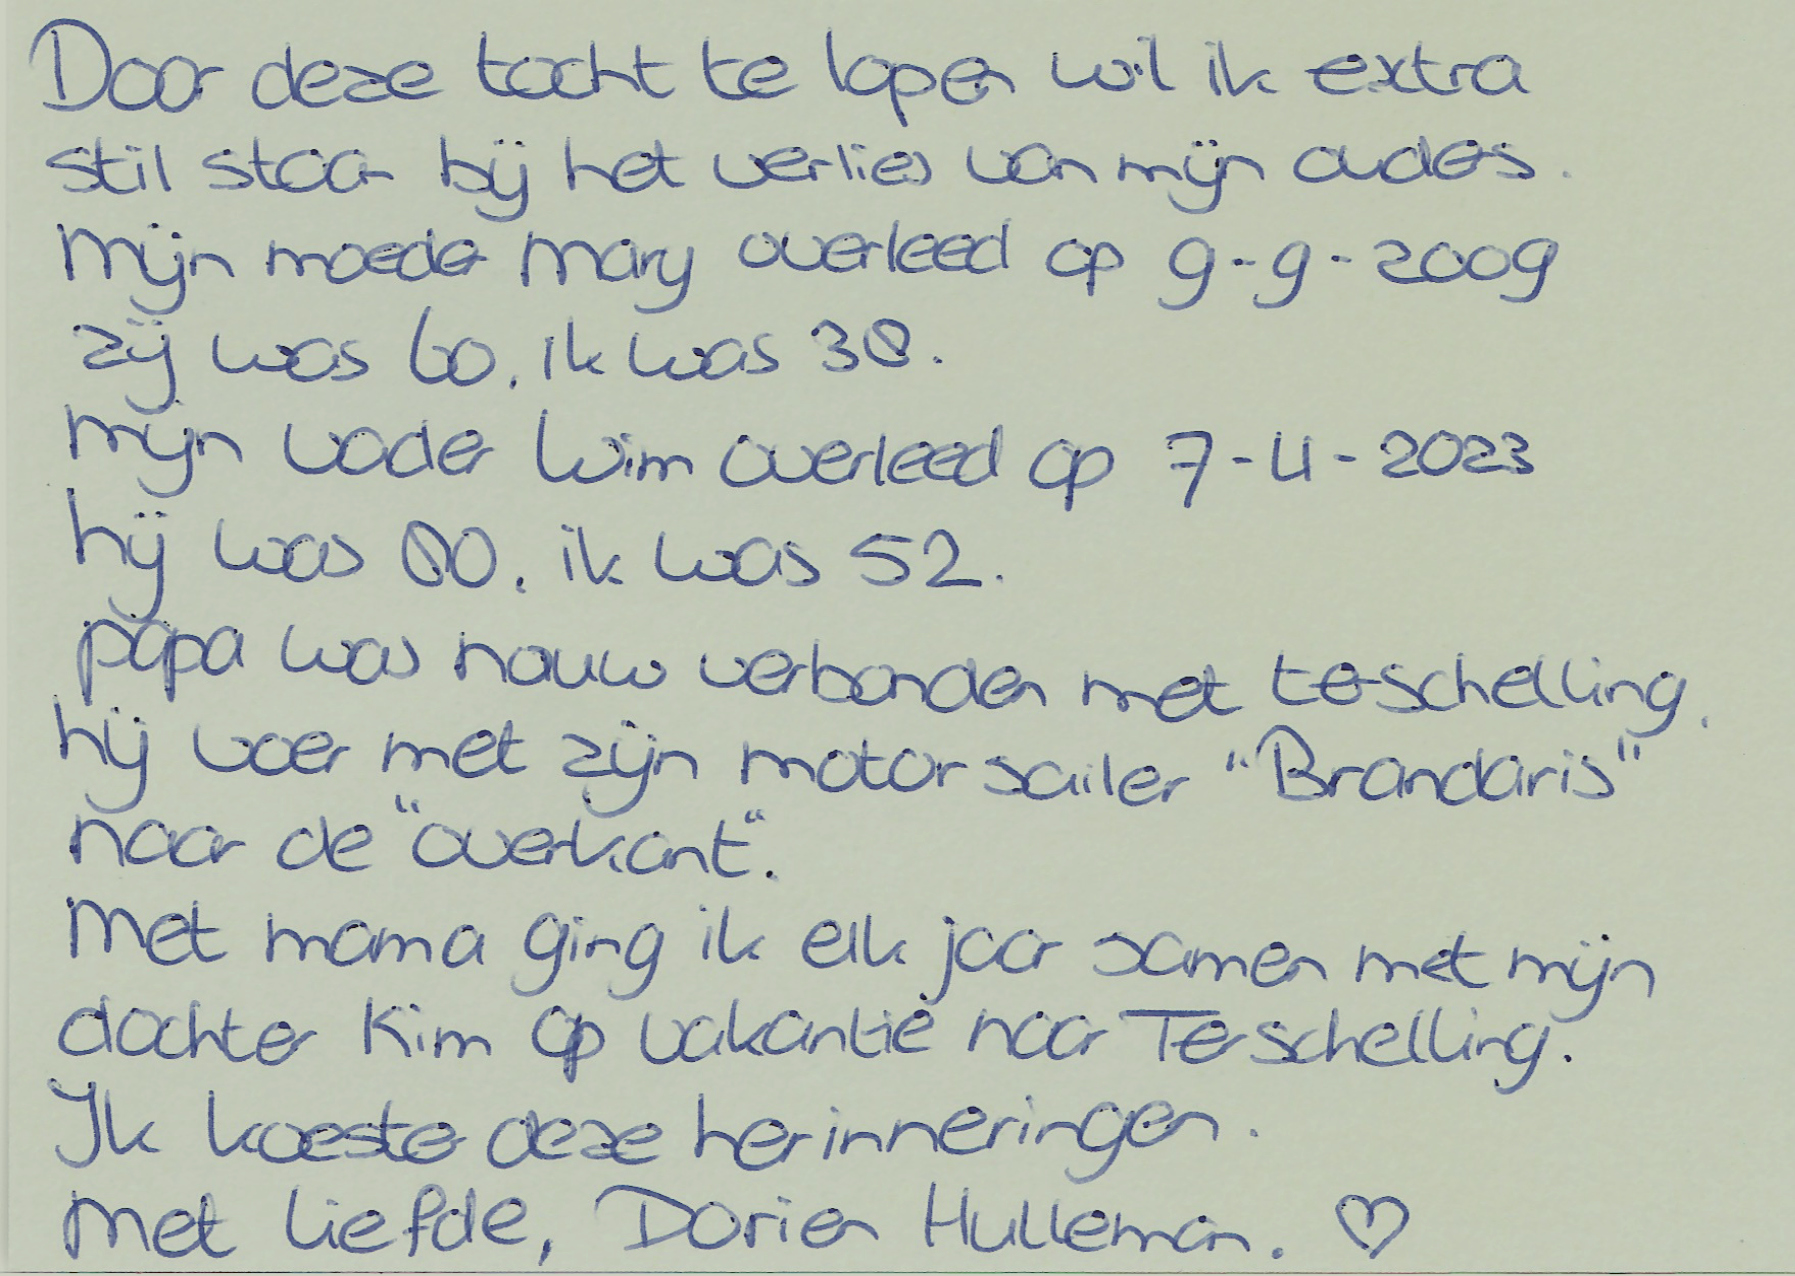 Door deze tocht te lopen wil ik extra
stil staan bij het verlies van mijn ouders.
Mijn moeder Mary overleed op 9-9-2009
zij was 60. ik was 38.
Mijn vader Wim overleed op 7-11-2023
hij was 80. ik was 52.
papa was nauw verbonden met terschelling.
hij voer met zijn motor sailer "Brandaris"
naar de "overkant".
Met mama ging ik elk jaar samen met mijn
dochter Kim op vakantie naar Terschelling.
Ik koester deze herinneringen.
Met liefde, Dorien Hulleman. ♡